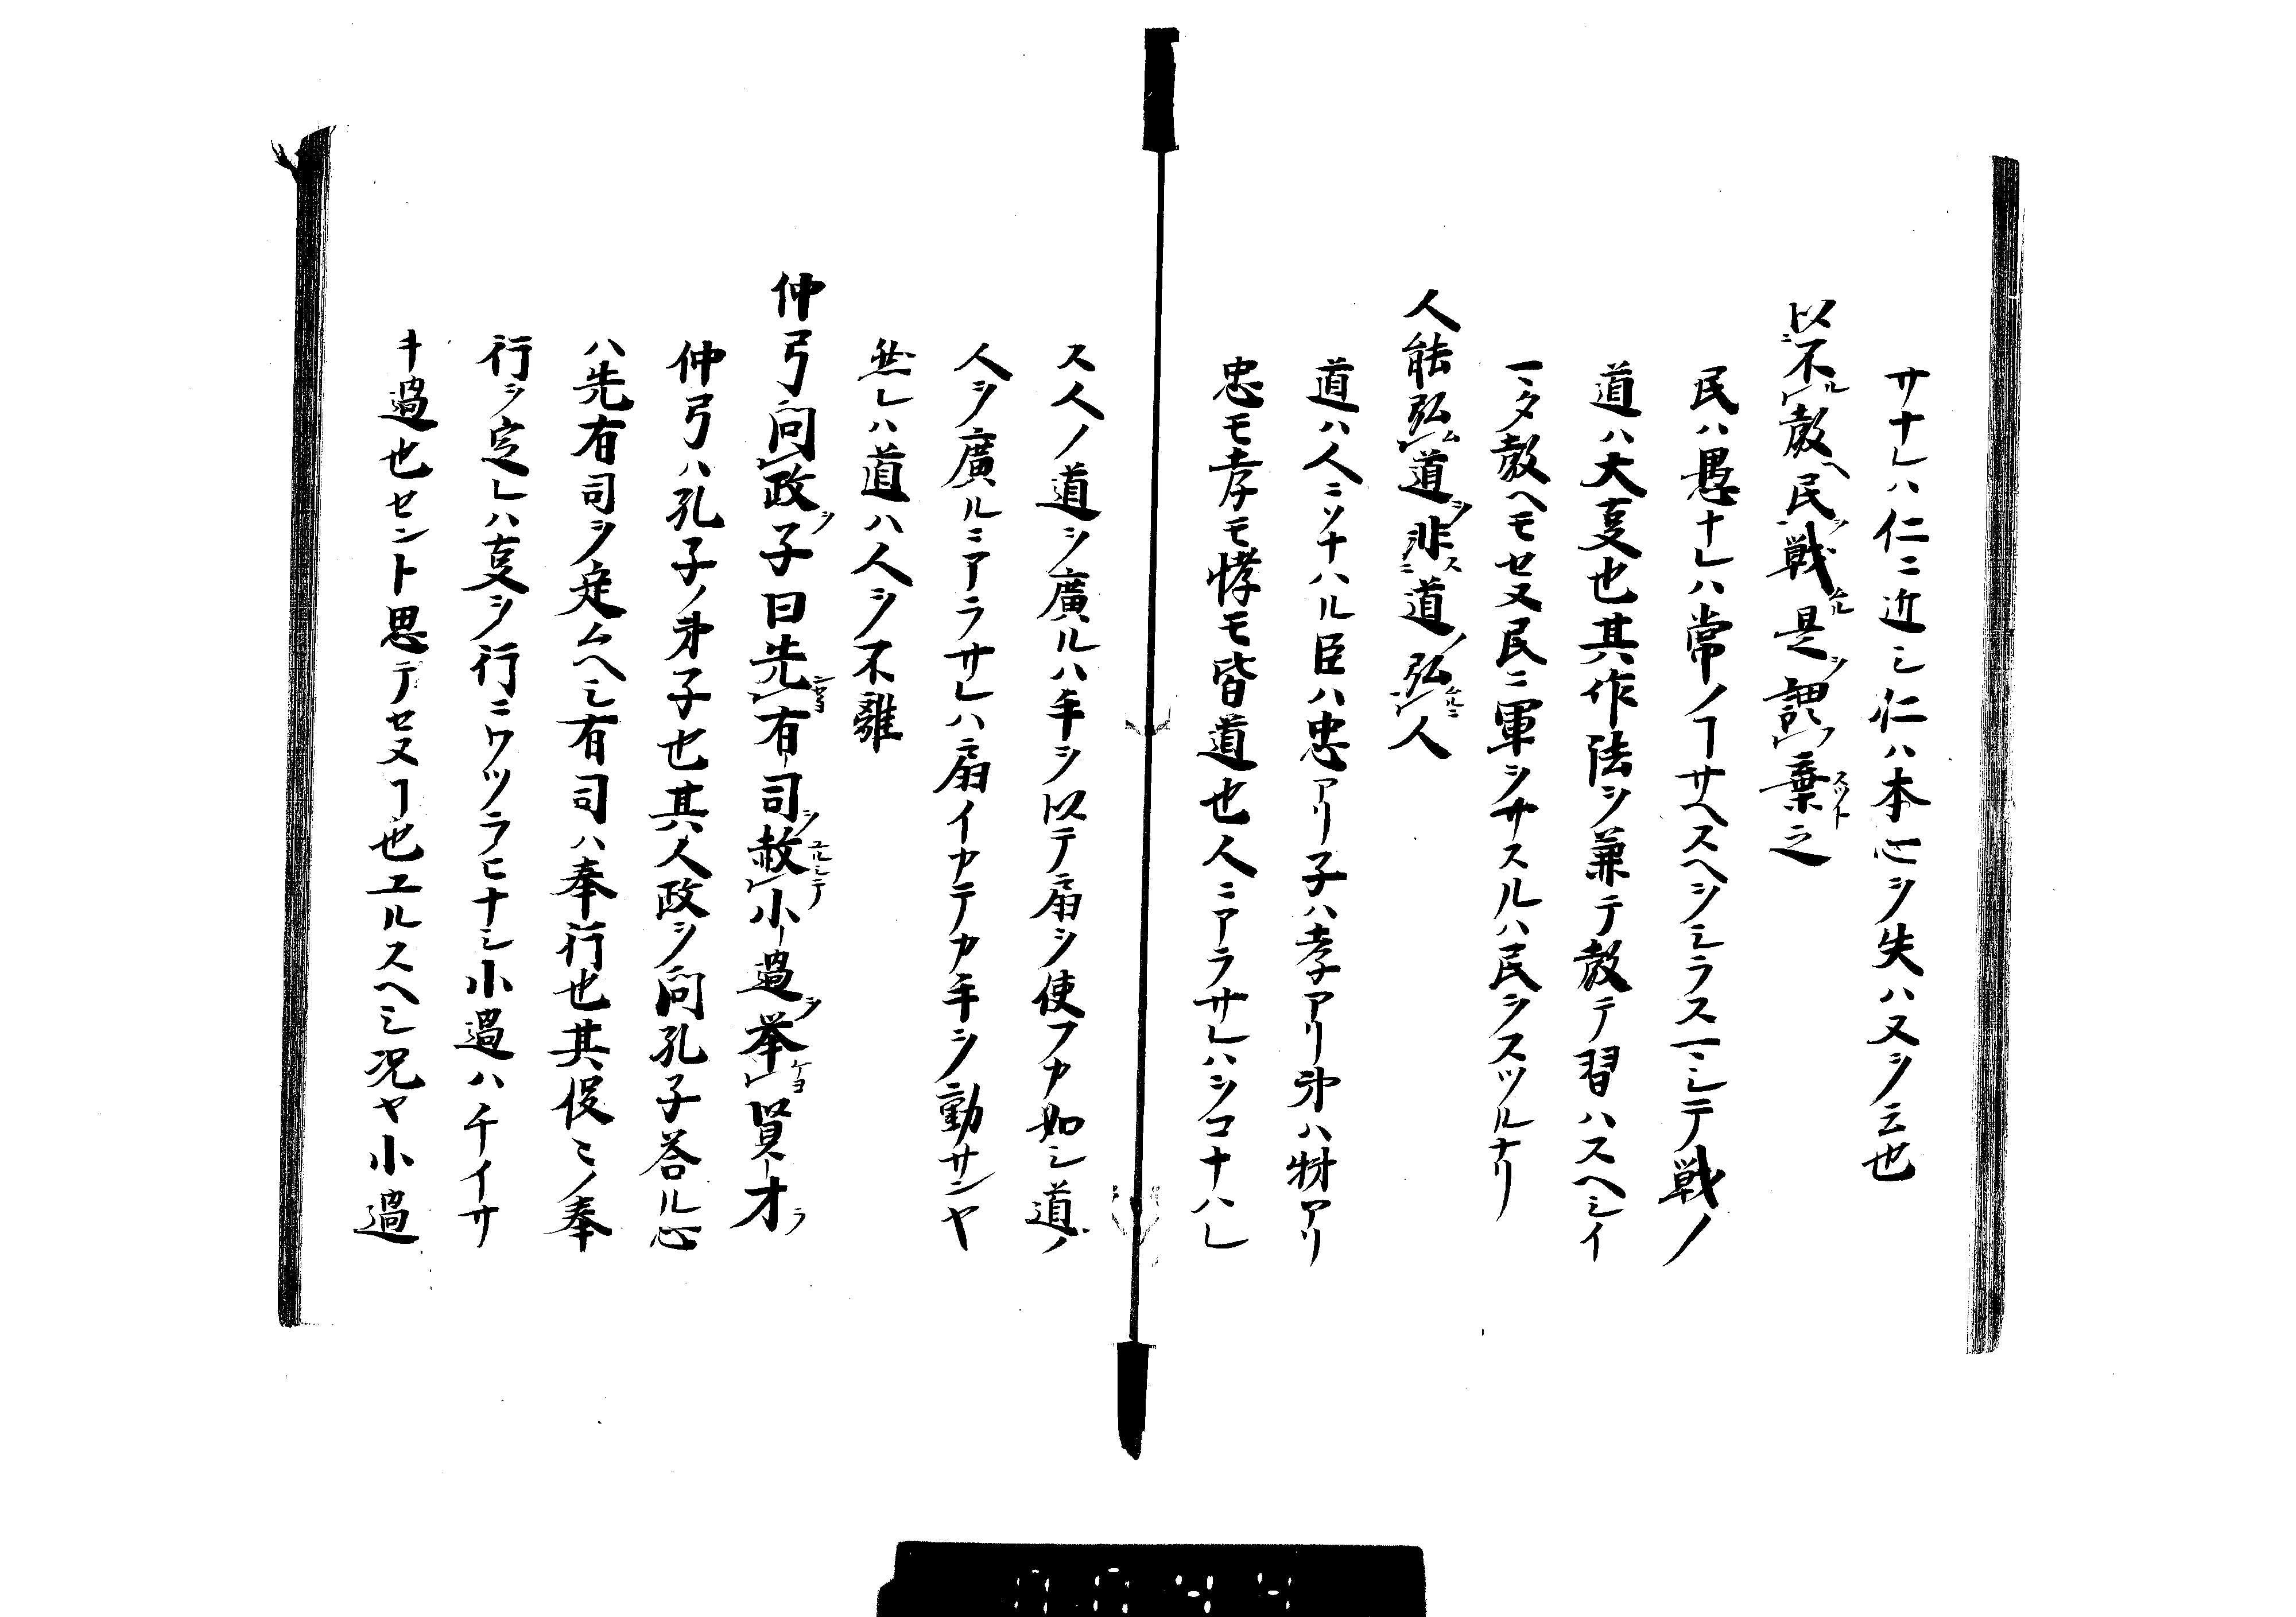 サナレハ仁ニ近シ仁ハ本心ヲ失ハヌヲ云也
以不ル教ヘ民ヲ戦ハル是ヲ謂フ棄スツト之
民ハ愚ナレハ常ノヿサヘスヘヲシラスマシテ戦ノ
道ハ大叓也其作法ヲ兼テ教テ習ハスヘシイ
マタ教ヘモセヌ民ニ軍ヲサスルハ民ヲスツルナリ
人能弘ム道ヲ非ス道ノ弘ムルニ人
道ハ人ニソナハル臣ハ忠アリ子ハ孝アリ弟ハ悌アリ
忠モ孝モ悌モ皆道也人ニアラサレハヲコナハレ
ス人ノ道ヲ廣ルハ手ヲ以テ扇ヲ使フカ如シ道ノ
人ヲ廣ルニアラサレハ扇イカテカ手ヲ動サンヤ
然レハ道ハ人ヲ不離
仲弓問政ヲ子曰先ニシ有司ヲ赦ユルシテ小過ヲ挙ケヨ賢才ヲ
仲弓ハ孔子ノ弟子也其人政ヲ問孔子荅ル心
ハ先有司ヲ定ムヘシ有司ハ奉行也其役〻ノ奉
行ヲ定レハ叓ヲ行ニワツラヒナシ小過ハチイサ
キ過也セント思テセヌヿ也ユルスヘシ况ヤ小過
0044